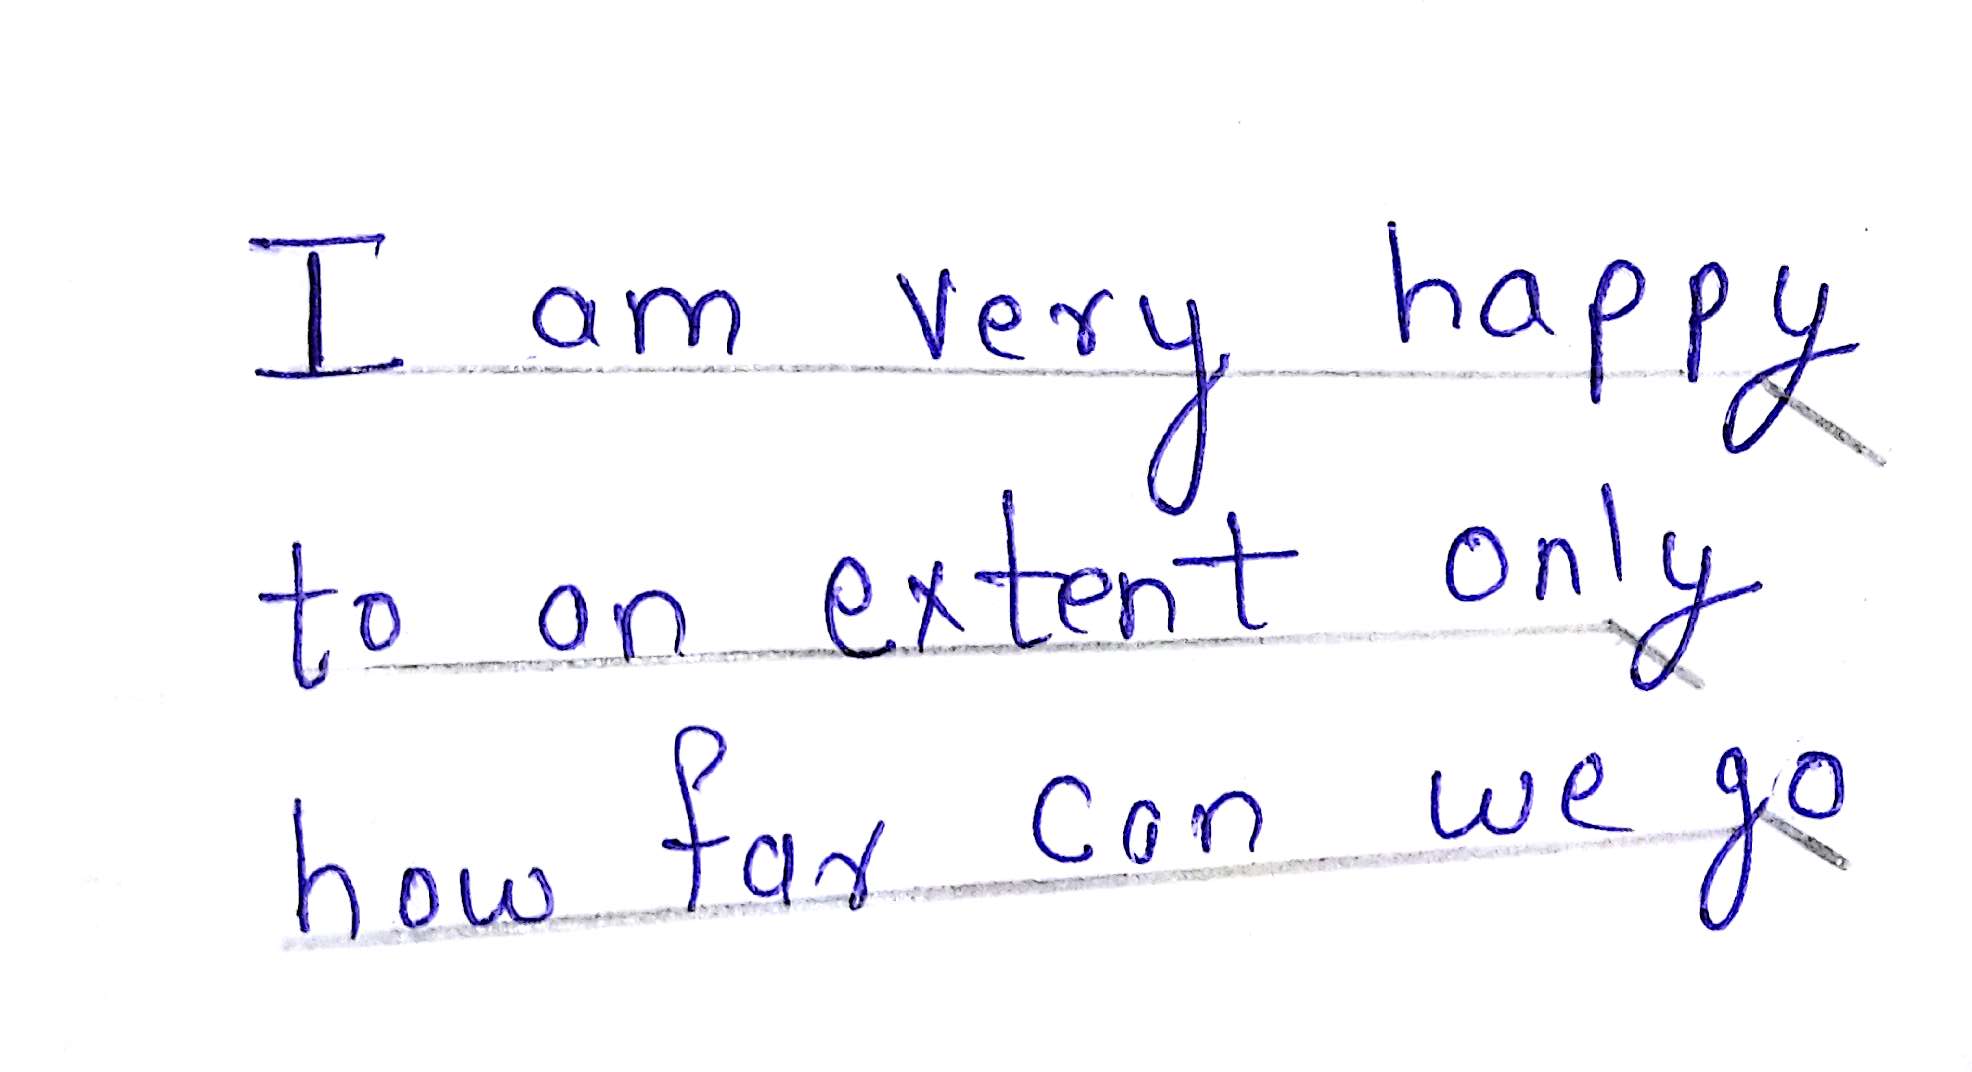 I am very happy
to an extent only
how far can we go